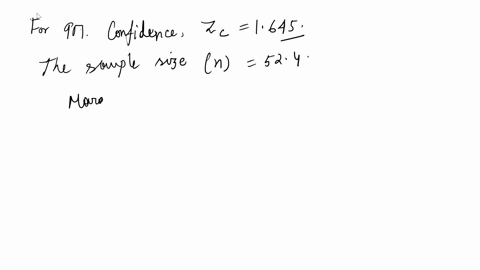 For 90%. Confidence, Zc = 1.645.
The sample size (n) = 52.4.
Maro